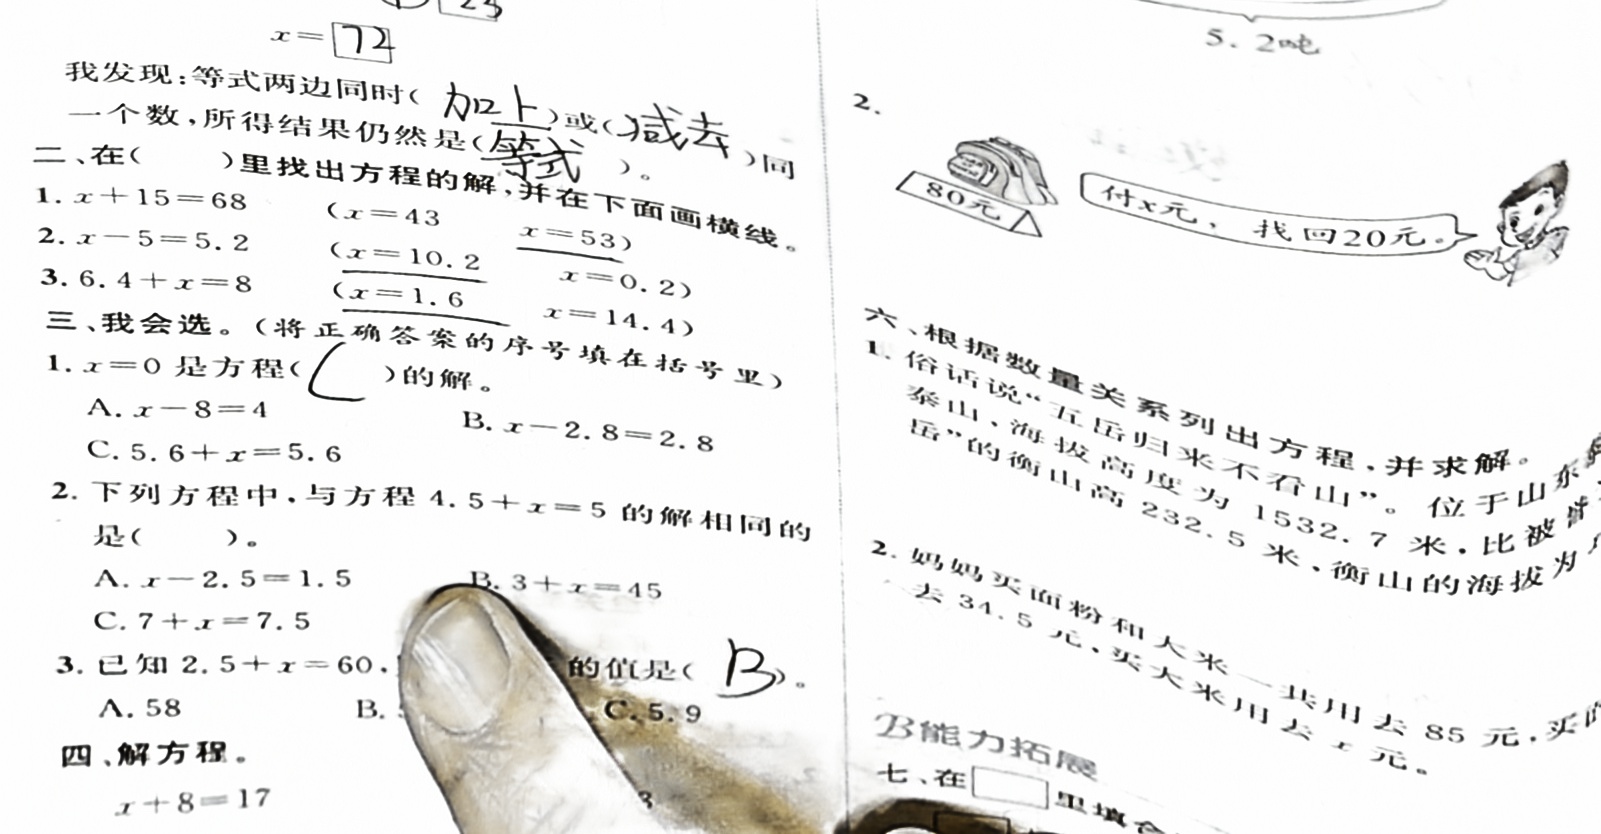 x=72
我发现:等式两边同时(加上)或(减去)同
一个数,所得结果仍然是(等式)。
二、在( )里找出方程的解,并在下面画横线。
1. x+15=68 (x=43 x=53)
2. x-5=5.2 (x=10.2 x=0.2)
3. 6.4+x=8 (x=1.6 x=14.4)
三、我会选。(将正确答案的序号填在括号里)
1. x=0 是方程(C)的解。
A. x-8=4 B. x-2.8=2.8
C. 5.6+x=5.6
2. 下列方程中,与方程 4.5+x=5 的解相同的
是( )。
A. x-2.5=1.5 B. 3+x=45
C. 7+x=7.5
3. 已知 2.5+x=60, 的值是(B)。
A. 58 B. C. 5.9
四、解方程。
x+8=17
5.2吨
2.
80元
付x元,找回20元。
六、根据数量关系列出方程,并求解。
1. 俗话说“五岳归来不看山”。位于山东
泰山,海拔高度为 1532.7 米,比被
岳”的衡山高 232.5 米,衡山的海拔为
2. 妈妈买面粉和大米一共用去 85 元,买
去 34.5 元,买大米用去 x 元。
B能力拓展
七、在 里填合